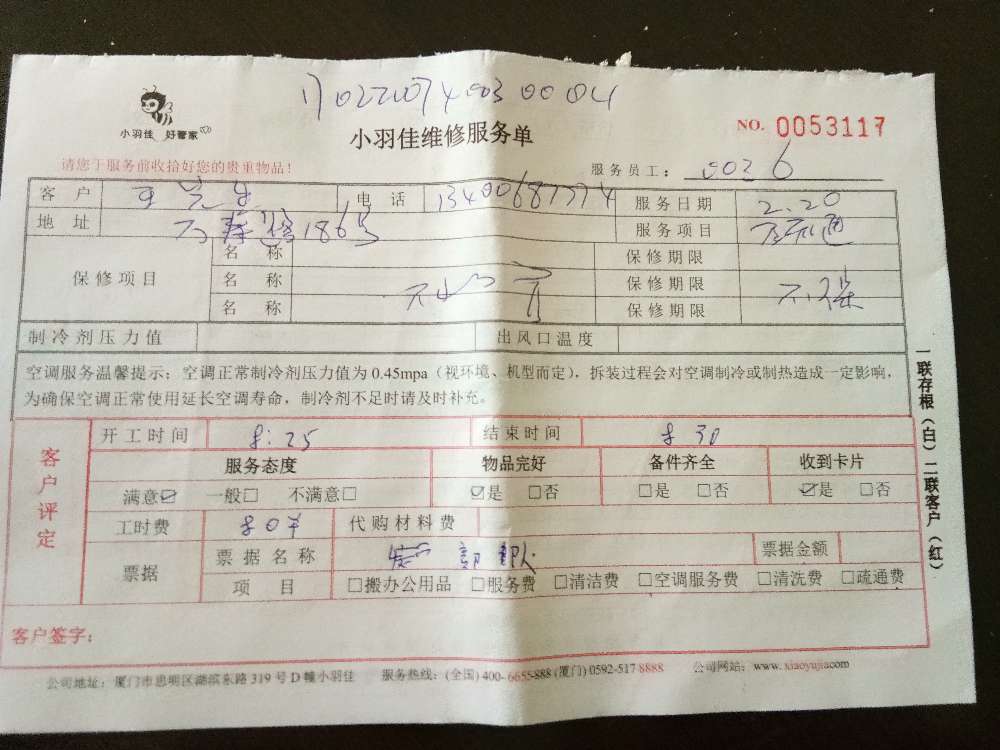 小羽佳 好管家
170227074003 0004
小羽佳维修服务单
NO. 0053117
请您于服务前收拾好您的贵重物品!
服务员工: 0026
客户 电话 服务日期 2.20
地址 186号 服务项目
保修项目 名称 保修期限
名称 保修期限
名称 保修期限
制冷剂压力值 出风口温度
空调服务温馨提示:空调正常制冷剂压力值为0.45mpa(视环境、机型而定),拆装过程会对空调制冷或制热造成一定影响,
为确保空调正常使用延长空调寿命,制冷剂不足时请及时补充。
客户评定
开工时间 8:25 结束时间 8 30
服务态度 物品完好 备件齐全 收到卡片
满意☑ 一般□ 不满意□ ☑是 □否 □是 □否 ☑是 □否
工时费 80¥ 代购材料费
票据 票据名称 票据金额
项目 □搬办公用品 □服务费 □清洁费 □空调服务费 □清洗费 □疏通费
客户签字:
公司地址:厦门市思明区湖滨东路319号D幢小羽佳 服务热线:(全国)400-6655-888(厦门)0592-517 8888 公司网站:www.xiaoyujia.com
一联存根(白)二联客户(红)